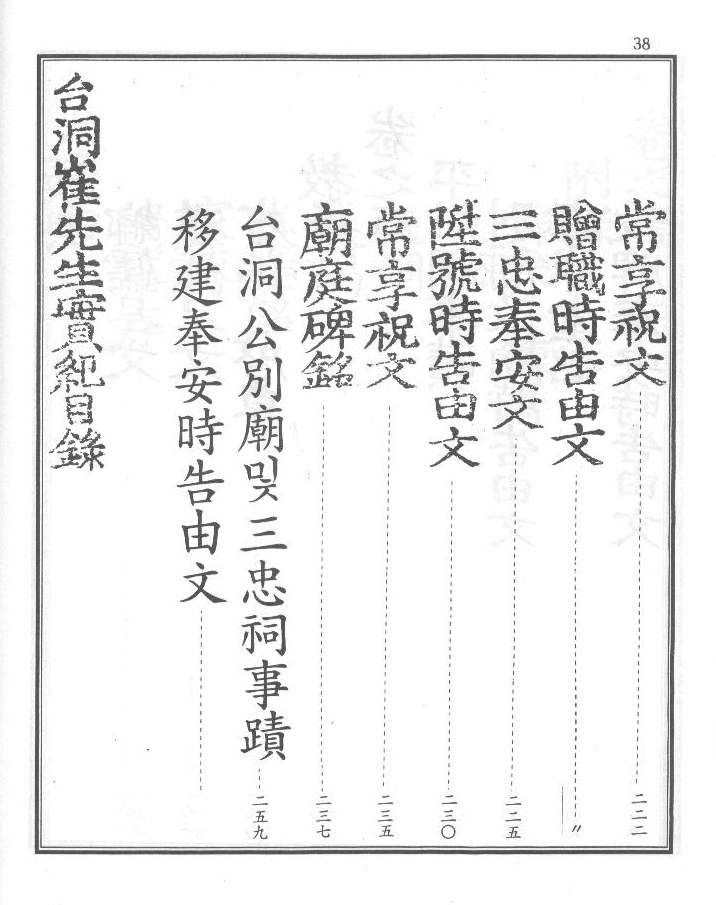 38
常享祝文 二二二
贈職時告由文 〃
三忠奉安文 二二五
陞號時告由文 二三〇
常享祝文 二三五
廟庭碑銘 二三七
台洞公別廟및三忠祠事蹟 二五九
移建奉安時告由文
台洞崔先生實紀目錄